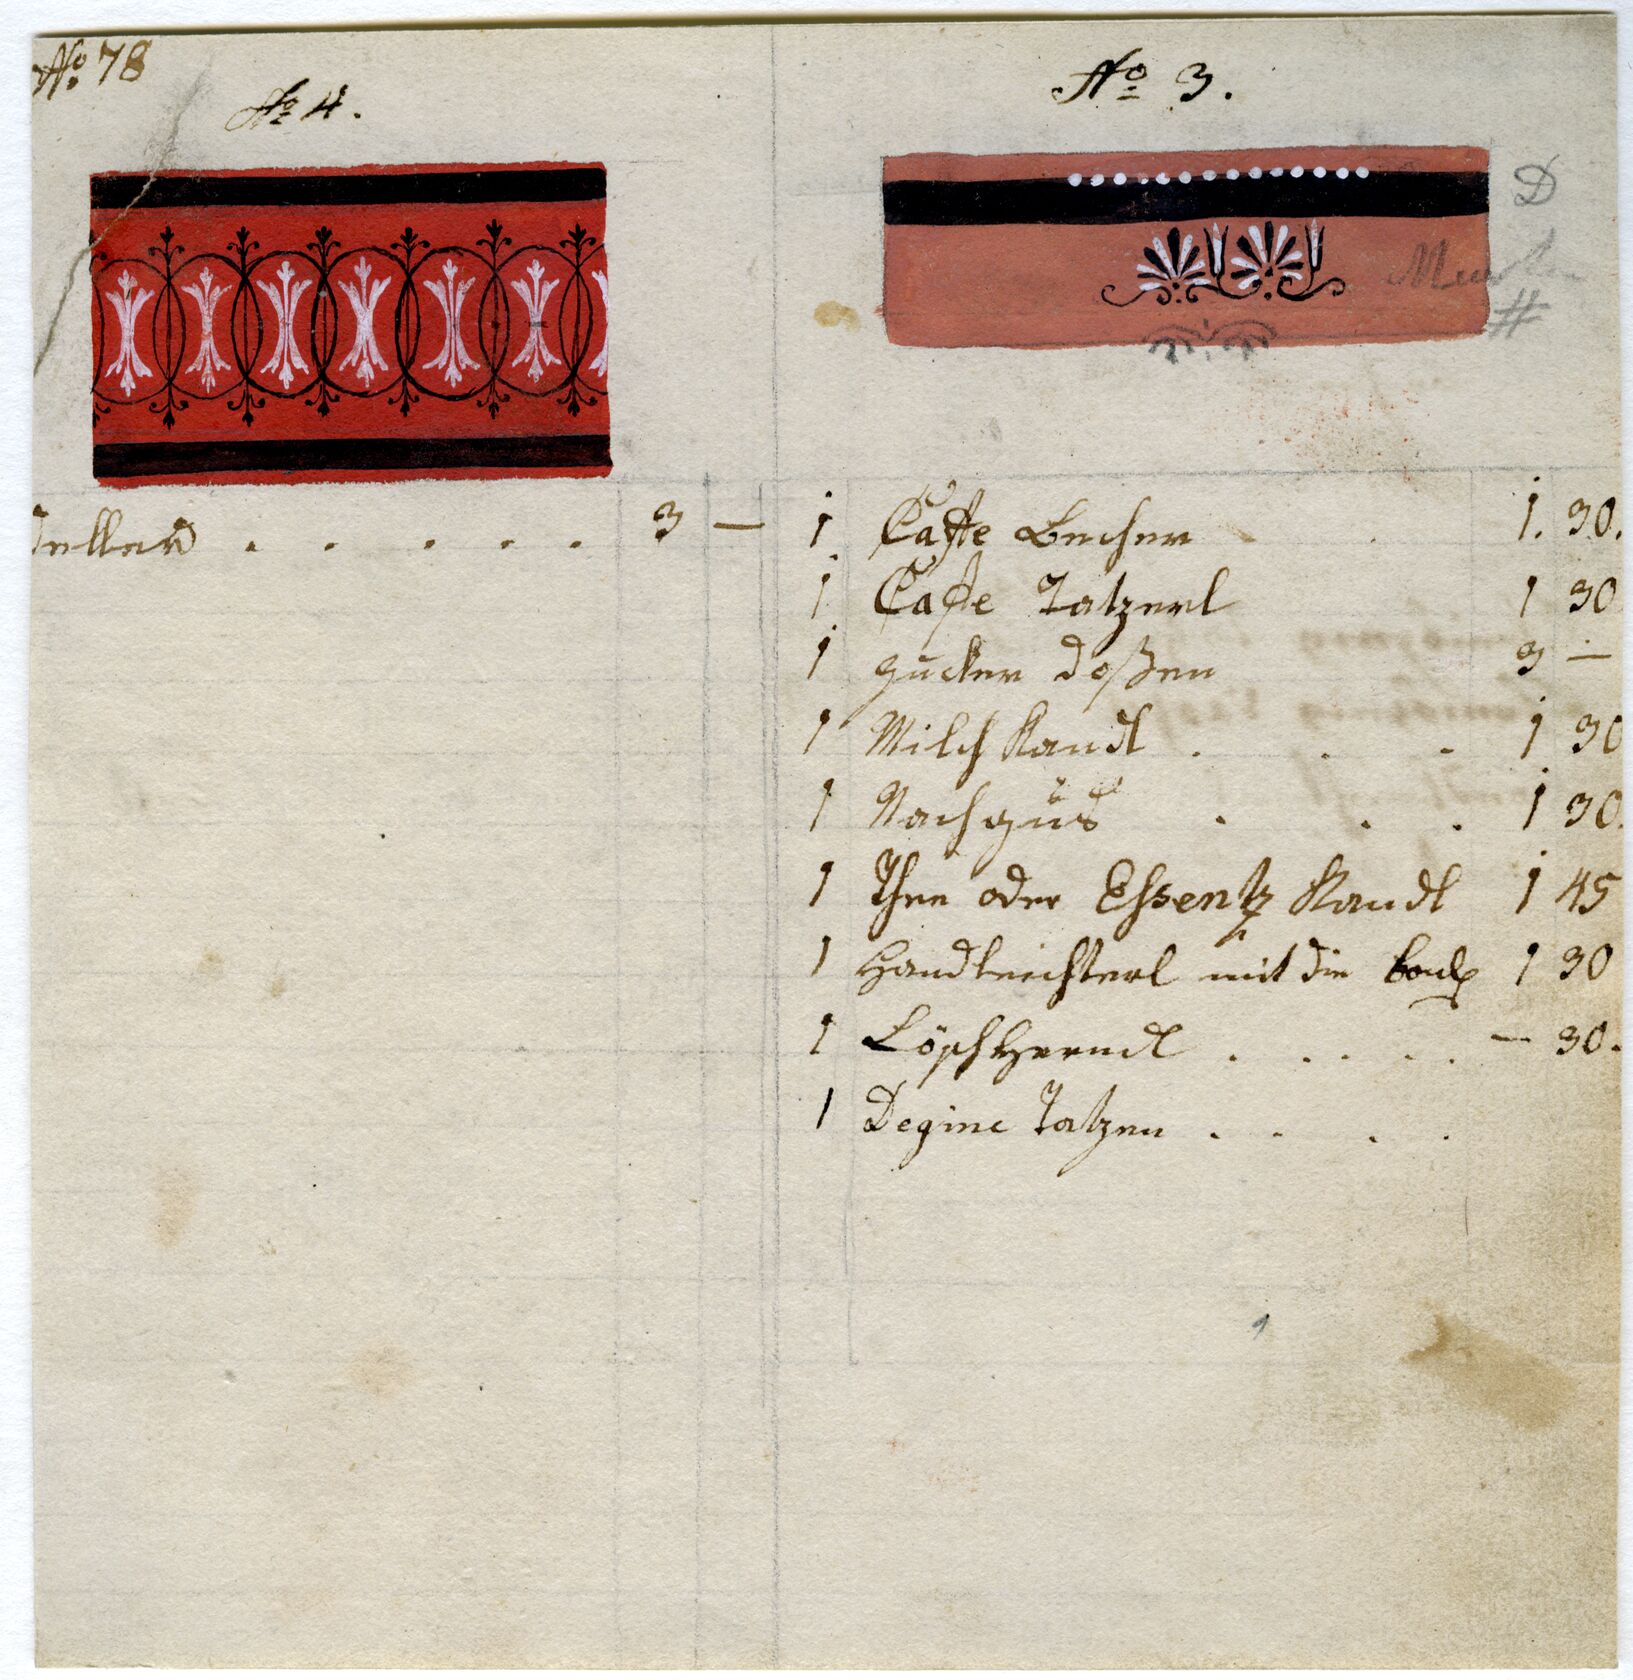 No 78
No 4.
Teller . . . . . 3 —
No 3.
D
Muster
#
1 Caffe Becher 1. 30.
1 Caffe Tatzerl 1 30
1 Zucker Doßen 3 —
1 Milch Kandl . . . 1 30
1 Nachgüs . . . 1 30.
1 Thee oder Essentz Kandl 1 45
1 Handleichterl mit die 1 30
1 Löschherndl . . . . . — 30.
1 Degine Tatzen . . . .